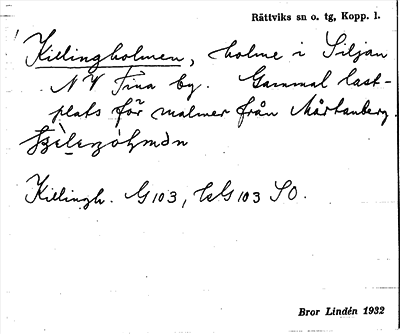 Rättviks sn o. tg, Kopp. l.
Killingholmen, holme i Siljan
NV Fina by. Gammal last-
plats för malmer från Mårtanberg.
Killingh. G 103, GG 103 SO.
Bror Lindén 1932